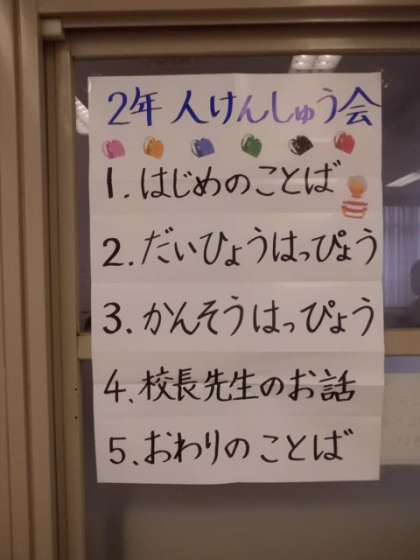 2年 人けんしゅう会
1. はじめのことば
2. だいひょうはっぴょう
3. かんそうはっぴょう
4. 校長先生のお話
5. おわりのことば